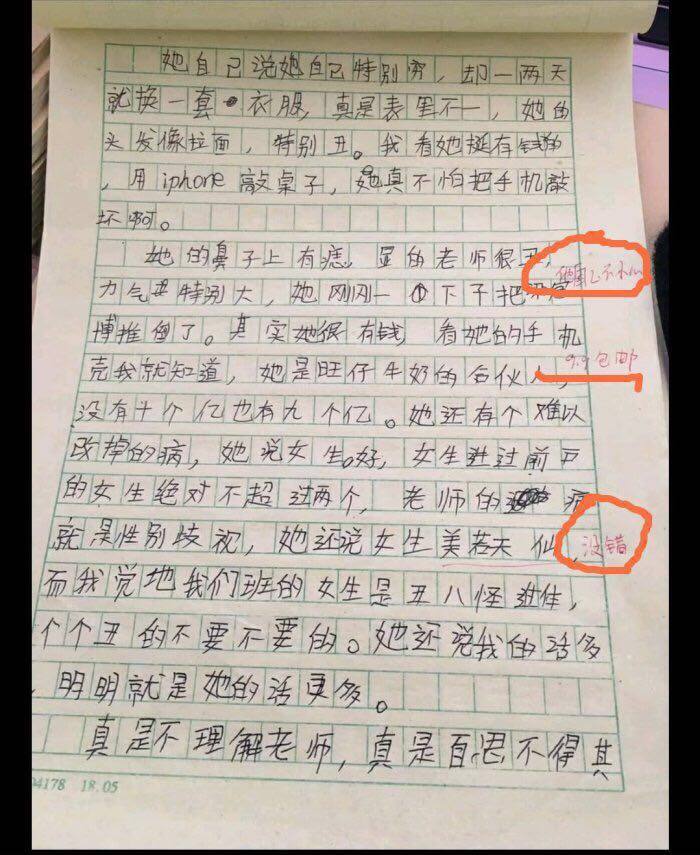 她自己说她自己特别穷，却一两天
就换一套衣服，真是表里不一，她的
头发像拉面，特别丑。我看她挺有钱的
，用iphone敲桌子，她真不怕把手机敲
坏啊。
她的鼻子上有痣，显的老师很丑，
力气特别大，她刚刚一下子把
博推倒了。其实她很有钱 看她的手机
9.9包邮
壳我就知道，她是旺仔牛奶的合伙人，
没有十个亿也有九个亿。她还有个难以
改掉的病，她说女生好，女生进过前
的女生绝对不超过两个，老师的病
就是性别歧视，她还说女生美若天仙，
没错
而我觉地我们班的女生是丑八怪进体，
个个丑的不要不要的。她还说我的话多
，明明就是她的话更多。
真是不理解老师，真是百思不得其
04178 18.05